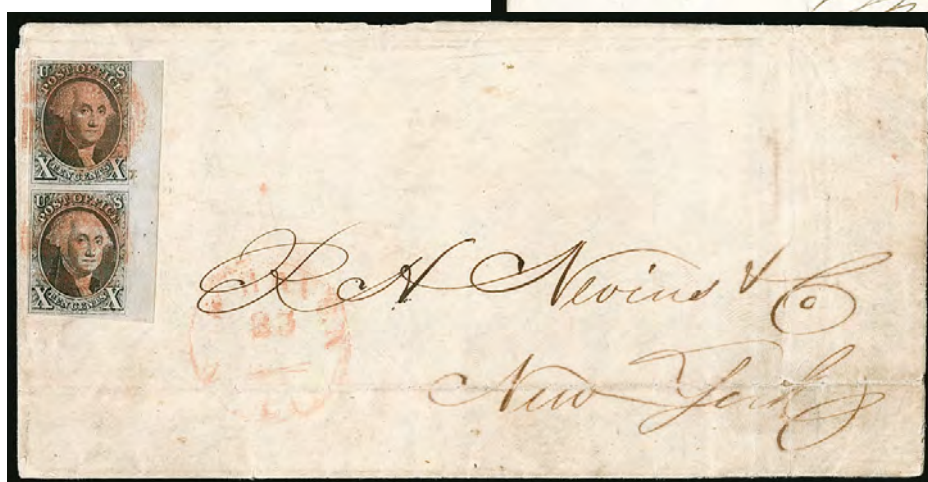 U S
POST OFFICE
X TEN CENTS X
U S
POST OFFICE
X TEN CENTS X
R H Nevins & C
23
New York